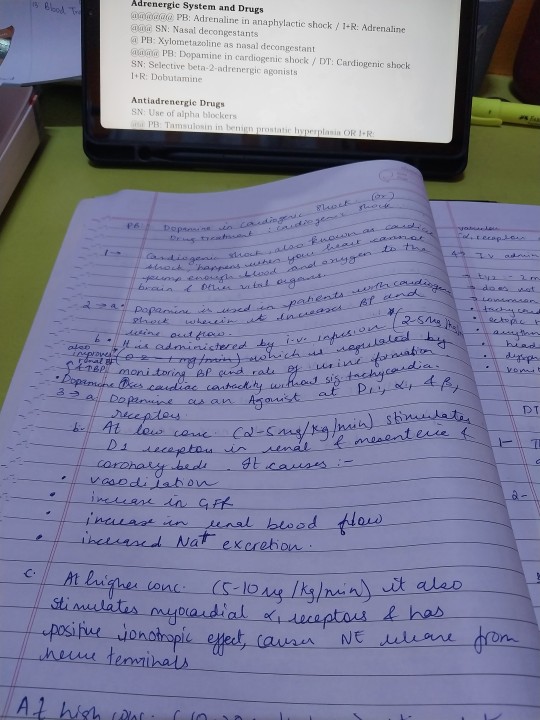 Blood
Adrenergic System and Drugs
@@@@@@@ PB: Adrenaline in anaphylactic shock / I+R: Adrenaline
@@@@ SN: Nasal decongestants
@ PB: Xylometazoline as nasal decongestant
@@@@@ PB: Dopamine in cardiogenic shock / DT: Cardiogenic shock
SN: Selective beta-2-adrenergic agonists
I+R: Dobutamine
Antiadrenergic Drugs
SN: Use of alpha blockers
@@ PB: Tamsulosin in benign prostatic hyperplasia OR I+R:
PB: Dopamine in cardiogenic shock (or)
Drug treatment: cardiogenic shock
1→ Cardiogenic shock also known as cardiac
shock, happens when your heart cannot
pump enough blood and oxygen to the
brain & other vital organs.
2→ a. Dopamine is used in patients with cardiogenic
shock wherein it increases BP and
urine outflow.
b. It is administered by i.v. infusion (2-5mg/kg/min)
which is regulated by
monitoring BP and rate of urine formation
also improves renal BF & ↑BP
• Dopamine ↑ses cardiac contractility without sig tachycardia.
3→ a. Dopamine as an Agonist at D1, α, & β1
receptors
b. At low conc. (2-5mg/kg/min) stimulates
D1 receptors in renal & mesenteric &
coronary beds. It causes :-
• vasodilation
• increase in GFR
• increase in renal blood flow
• increased Na+ excretion.
c. At higher conc. (5-10ug/kg/min) it also
stimulates myocardial α1 receptors & has
positive ionotropic effect, causes NE release from
nerve terminals
At high conc.
DT
1-
2-